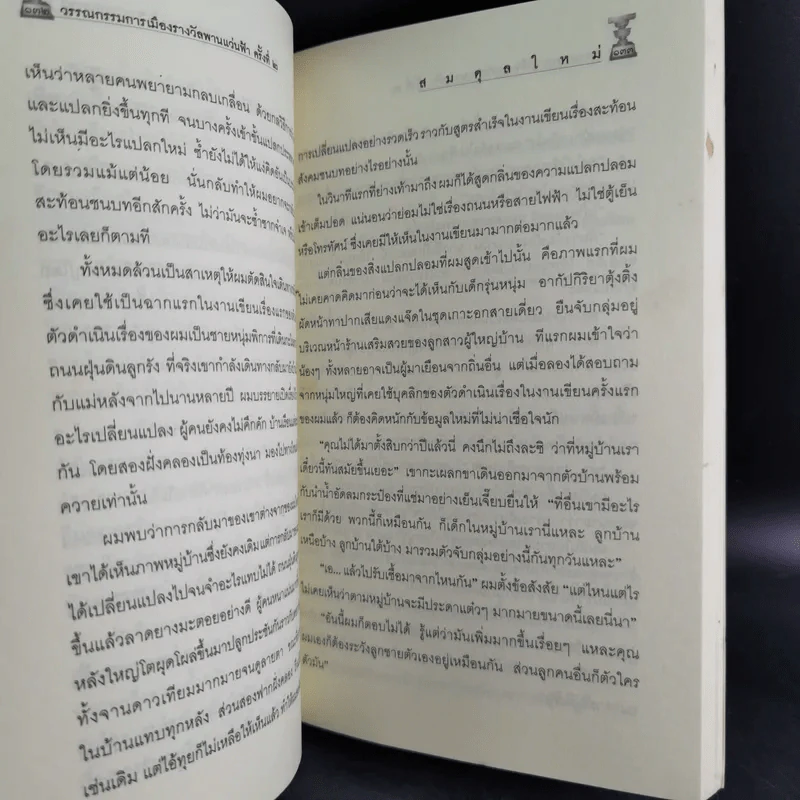 ๑๓๒ วรรณกรรมการเมืองรางวัลพานแว่นฟ้า ครั้งที่ ๒
เห็นว่าหลายคนพยายามกลบเกลื่อน ด้วยกลวิธีการ
และแปลกยิ่งขึ้นทุกที จนบางครั้งเข้าขั้นแปลกประ
ไม่เห็นมีอะไรแปลกใหม่ ซ้ำยังไม่ได้ให้แง่คิดอัน
โดยรวมแม้แต่น้อย นั่นกลับทำให้ผมอยาก
สะท้อนชนบทอีกสักครั้ง ไม่ว่ามันจะซ้ำซากจำเจ
อะไรเลยก็ตามที
ทั้งหมดล้วนเป็นสาเหตุให้ผมตัดสินใจเดินทาง
ซึ่งเคยใช้เป็นฉากแรกในงานเขียนเรื่องแรกของ
ตัวดำเนินเรื่องของผมเป็นชายหนุ่มพิการที่เดิน
ถนนฝุ่นดินลูกรัง ที่จริงเขากำลังเดินทางกลับมา
กับแม่หลังจากไปนานหลายปี ผมบรรยายเปิดเรื่อง
อะไรเปลี่ยนแปลง ผู้คนยังคงไม่คึกคัก บ้านเรือน
กัน โดยสองฝั่งคลองเป็นท้องทุ่งนา มองไปทาง
ควายเท่านั้น
ผมพบว่าการกลับมาของเขาต่างจากของ
เขาได้เห็นภาพหมู่บ้านซึ่งยังคงเดิม แต่การกลับมา
ได้เปลี่ยนแปลงไปจนจำอะไรแทบไม่ได้ ถนน
ขึ้นแล้วลาดยางมะตอยอย่างดี ผู้คนหนาแน่น
หลังใหญ่โตผุดโผล่ขึ้นมาปลูกประชันกัน
ทั้งจานดาวเทียมมากมายจนดูลายตา
ในบ้านแทบทุกหลัง ส่วนสองฟากฝั่งคลอง
เช่นเดิม แต่ไอ้ทุยก็ไม่เหลือให้เห็นแล้ว
สมดุลใหม่ ๑๓๓
การเปลี่ยนแปลงอย่างรวดเร็ว ราวกับสูตรสำเร็จในงานเขียนเรื่องสะท้อน
สังคมชนบทอย่างไรอย่างนั้น
ในวินาทีแรกที่ย่างเท้ามาถึง ผมก็ได้สูดกลิ่นของความแปลกปลอม
เข้าเต็มปอด แน่นอนว่าย่อมไม่ใช่เรื่องถนนหรือสายไฟฟ้า ไม่ใช่ตู้เย็น
หรือโทรทัศน์ ซึ่งเคยมีให้เห็นในงานเขียนมามากต่อมากแล้ว
แต่กลิ่นของสิ่งแปลกปลอมที่ผมสูดเข้าไปนั้น คือภาพแรกที่ผม
ไม่เคยคาดคิดมาก่อนว่าจะได้เห็นกับเด็กรุ่นหนุ่ม อากัปกิริยาตุ้งติ้ง
ผัดหน้าทาปากเสียแดงแจ๊ดในชุดเกาะอกสายเดี่ยว ยืนจับกลุ่มอยู่
บริเวณหน้าร้านเสริมสวยของลูกสาวผู้ใหญ่บ้าน ทีแรกผมเข้าใจว่า
น้องๆ ทั้งหลายอาจเป็นผู้มาเยือนจากถิ่นอื่น แต่เมื่อลองได้สอบถาม
จากหนุ่มใหญ่ที่เคยใช้บุคลิกของตัวดำเนินเรื่องในงานเขียนครั้งแรก
ของผมแล้ว ก็ต้องคิดหนักกับข้อมูลใหม่ที่ไม่น่าเชื่อใจนัก
“คุณไม่ได้มาตั้งสิบกว่าปีแล้วนี่ คงนึกไม่ถึงละซิ ว่าที่หมู่บ้านเรา
เดี๋ยวนี้ทันสมัยขึ้นเยอะ” เขากะเผลกขาเดินออกมาจากตัวบ้านพร้อม
กับนำน้ำอัดลมกระป๋องที่แช่มาอย่างเย็นเจี๊ยบยื่นให้ “ที่อื่นเขามีอะไร
เราก็มีด้วย พวกนี้ก็เหมือนกัน ก็เด็กในหมู่บ้านเรานี่แหละ ลูกบ้าน
เหนือบ้าง ลูกบ้านใต้บ้าง มารวมตัวจับกลุ่มอย่างนี้กันทุกวันแหละ”
“เอ... แล้วไปรับเชื้อมาจากไหนกัน” ผมตั้งข้อสงสัย “แต่ไหนแต่ไร
ไม่เคยเห็นว่าตามหมู่บ้านจะมีประดาแต๋วๆ มากมายขนาดนี้เลยนี่นา”
“อันนี้ผมก็ตอบไม่ได้ รู้แต่ว่ามันเพิ่มมากขึ้นเรื่อยๆ แหละคุณ
ผมเองก็ต้องระวังลูกชายตัวเองอยู่เหมือนกัน ส่วนลูกคนอื่นก็ตัวใคร
ตัวมัน”